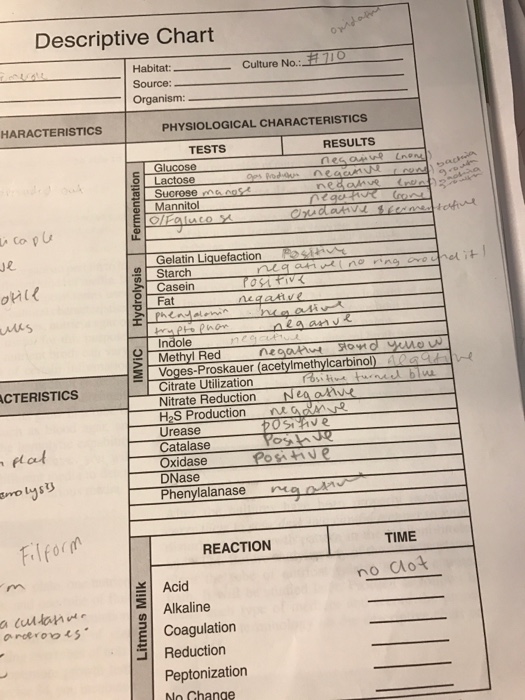 Descriptive Chart
Habitat:
Culture No.: #710
Source:
Organism:
HARACTERISTICS
PHYSIOLOGICAL CHARACTERISTICS
TESTS
RESULTS
Fermentation
Glucose negative (none)
Lactose negative
Sucrose negative
Mannitol negative
O/F glucose Oxidative & fermentative
Hydrolysis
Gelatin Liquefaction Positive
Starch negative no ring around it!
Casein Positive
Fat negative
negative
tryptophan negative
IMViC
Indole negative
Methyl Red negative stayed yellow
Voges-Proskauer (acetylmethylcarbinol) negative
Citrate Utilization Positive turned blue
Nitrate Reduction Negative
H₂S Production negative
Urease positive
Catalase Positive
Oxidase Positive
DNase
Phenylalanase negative
ACTERISTICS
flat
Filform
Litmus Milk
REACTION
TIME
no clot
Acid
Alkaline
Coagulation
Reduction
Peptonization
No Change